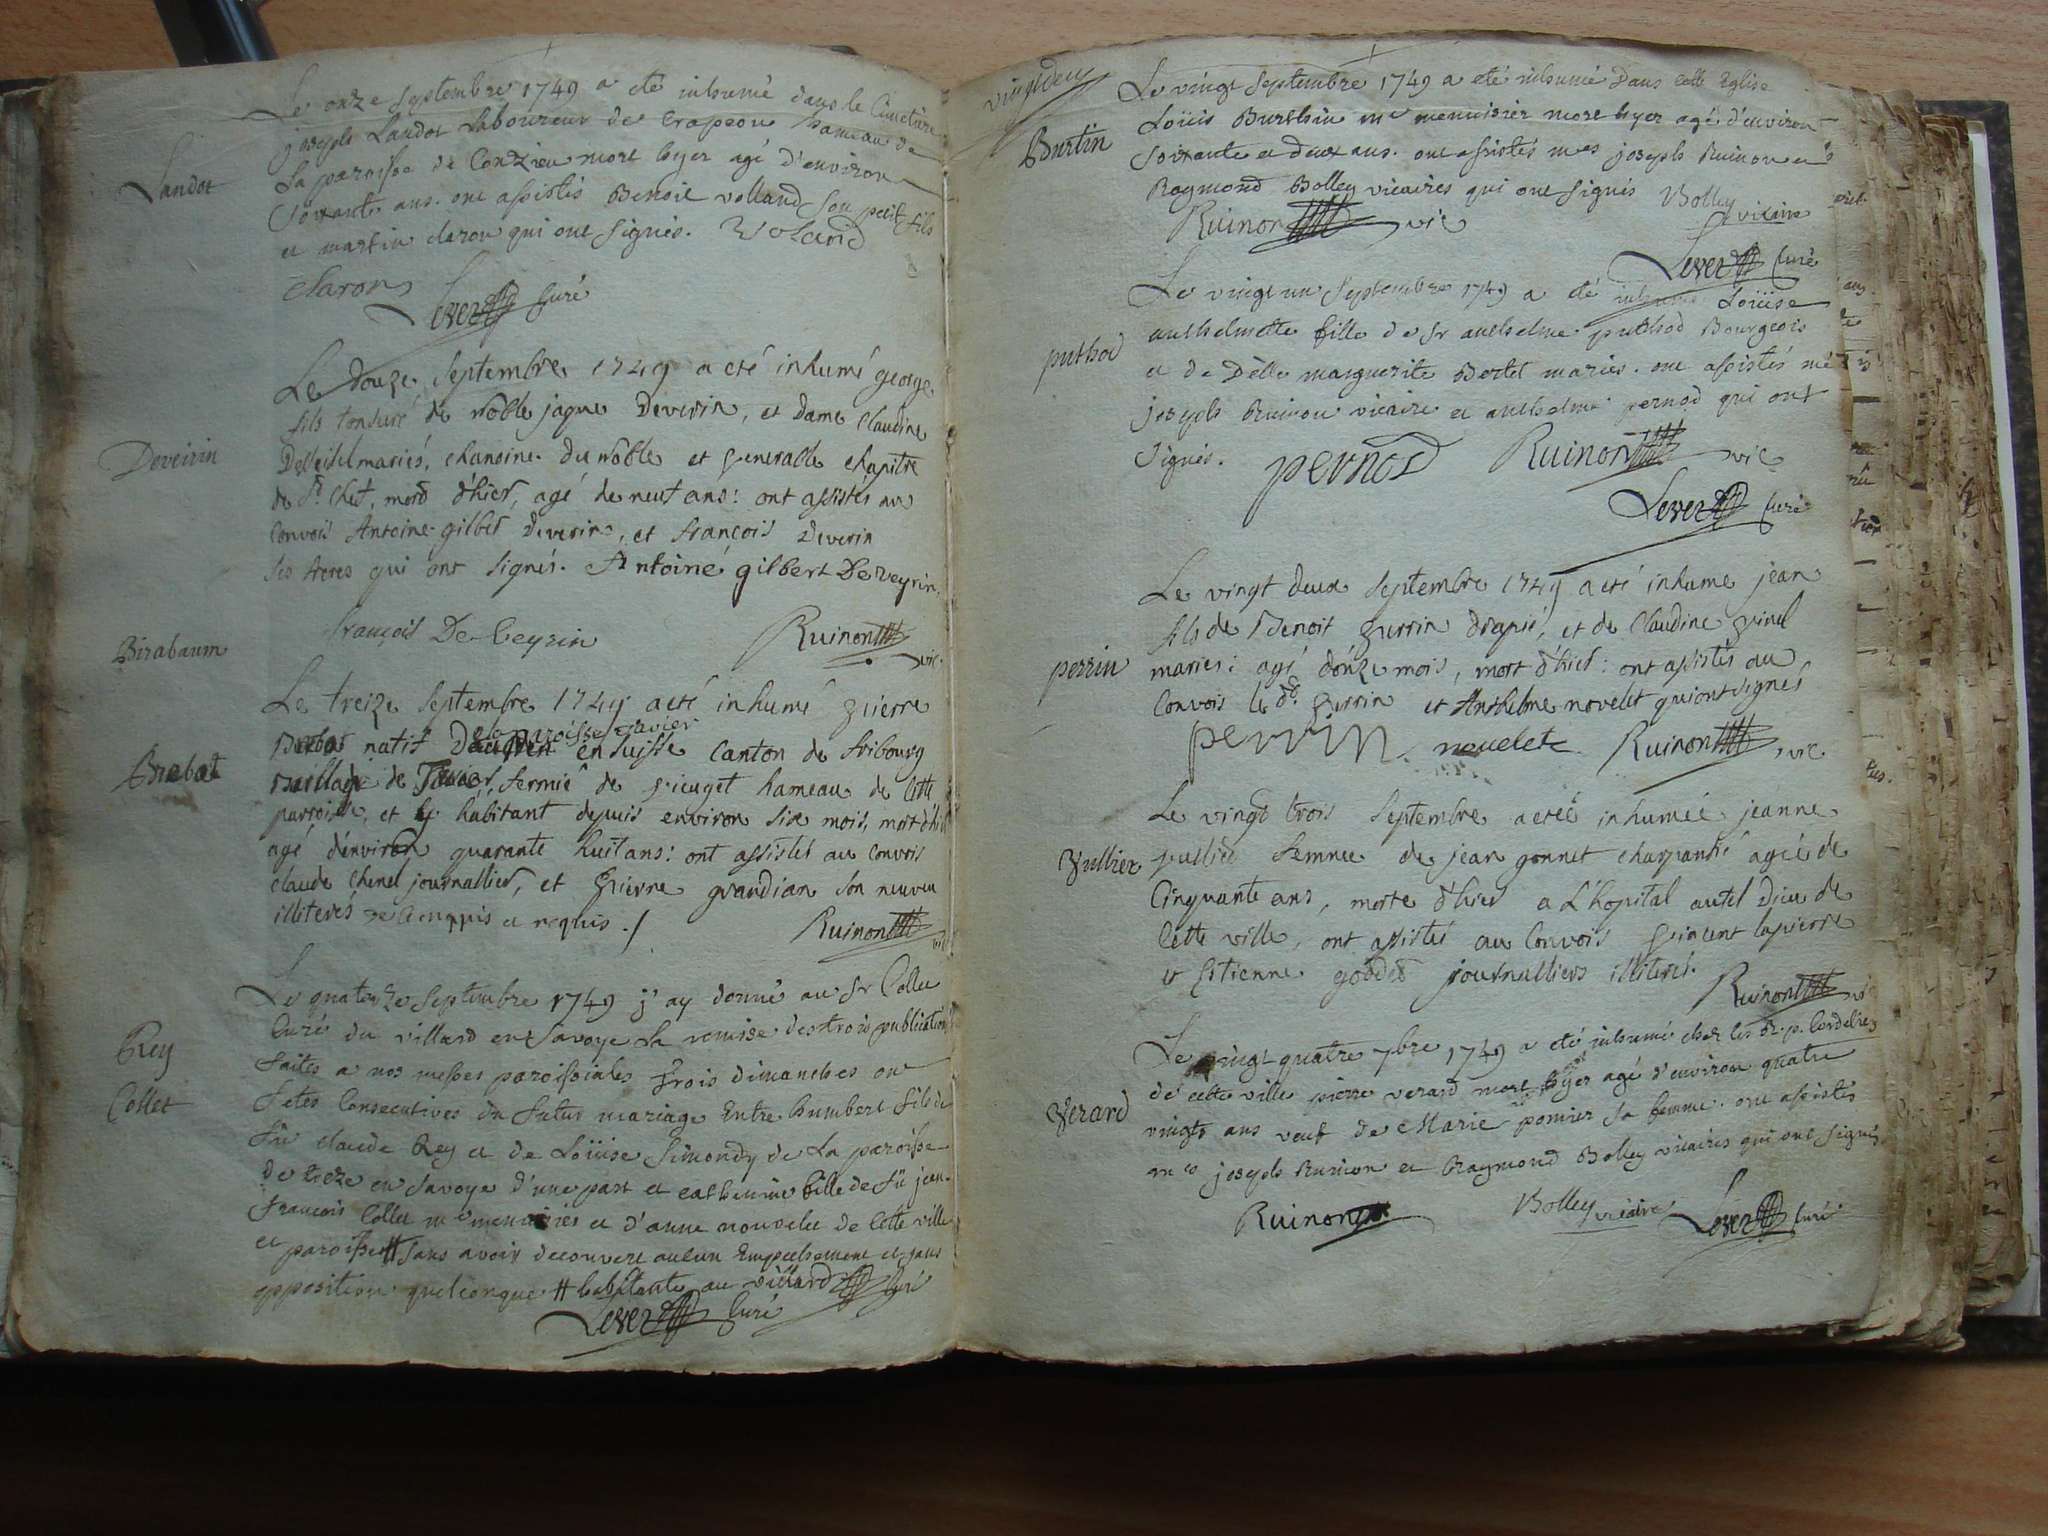 Le onze Septembre 1749 a eté inhumé dans le Cimetiere
joseph Landot Laboureur de Crapeou hameau de
Landot
La paroisse de Conzieu mort hyer agé d'environ
Soixante ans. ont assistés Benoit volland son petit fils
et martin claron qui ont signés. Voland
Claron
Sever Curé
Le douze Septembre 1749 a eté inhumé george
fils tonsuré de noble jaque Deverin, et dame Claudine
Deveirin
mariés, chanoine du noble et venerable chapitre
de St. Chef, mord d'hier, agé de neuf ans: ont assistés au
Convois Antoine gilber Deverin, et françois Deverin
ses freres qui ont signés. Antoine gilbert De Veyrin.
françois De Veyrin Ruinon vic.
Birabaum
Le treize Septembre 1749 a eté inhumé pierre
paroisse tavier
natif en suisse Canton de fribourg
Brabat
Baillage de fermié de vieuget hameau de Cette
parroisse, et y habitant depuis environ six mois, mort d'hier
agé d'environ quarante huit ans: ont assistés au Convois
Claude Chenel journallier, et pierre grandian son neuveu
illiterés de Ce enquis et requis ./ Ruinon vic
Le quatorze Septembre 1749 j'ay donné au Sr Collet
Curé du villard en Savoye La remise des trois publications
Rey
Collet
faites a nos messes paroissiales trois dimanches ou
fetes Consecutives du futur mariage Entre humbert fils de
fû claude Rey et de Loüise Simondy de La paroisse
de en Savoye d'une part et catherine fille de fû jean
francois Collet me menuisier et d'anne nouvelet de Cette ville
et paroisse # sans avoir decouvert aucun Empechement et sans
opposition quelconque # habitante au villard Curé
Sever Curé
vingt deux
Le vingt Septembre 1749 a eté inhumé Dans cette Eglise
Loüis Burthin me menuisier mort hyer agé d'environ
Burtin
Soixante et deux ans. ont assistés mes joseph Ruinon et
Raymond Bolley vicaires qui ont signés Bolley vicaire
Ruinon vic
Sever Curé
Le vingt un Septembre 1749 a eté inhumé Loüise
anthelmette fille de Sr anthelme puthod Bourgeois
puthod
et de Delle marguerite Bertet mariés. ont assistés me
joseph Ruinon vicaire et anthelme pernod qui ont
Signés. pernod Ruinon vic
Sever Curé
Le vingt deux Septembre 1749 a eté inhumé jean
fils de Benoit perrin drapié, et de Claudine
perrin
mariés: agé d'onze mois, mort d'hier: ont assistés au
Convois le d. perrin et Anthelme novelet qui ont signés
perrin nouelet Ruinon vic
Le vingt trois Septembre a eté inhumée jeanne
Vullier
vullier femme de jean gonnet charpantié agée de
Cinquante ans, morte d'hier a L'hopital autel Dieu de
Cette ville, ont assistés au Convois vincent lapierre
et Estienne godder journalliers illiterés.
Ruinon vic
Le vingt quatre 7bre 1749 a eté inhumé chez les R. p. Cordeliers
de cette ville pierre verard mort hyer agé d'environ quatre
Verard
vingts ans veuf de Marie pomier sa femme. ont assistés
mes joseph Ruinon et Raymond Bolley vicaires qui ont signés
Ruinon Bolley vicaire Sever Curé